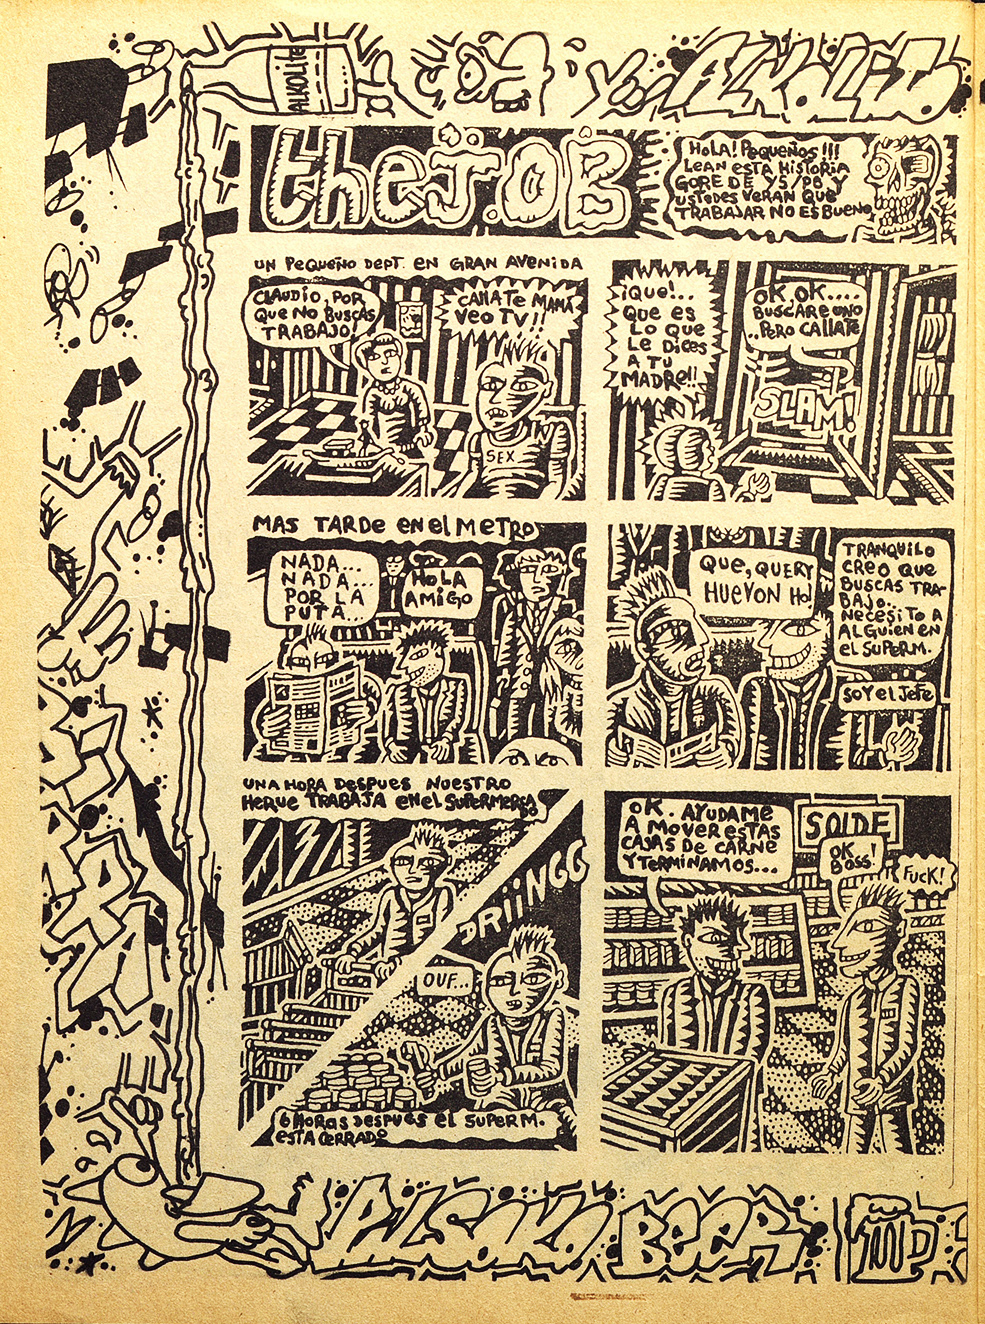 ALKOLITE
Y... ALKOLITO
the J.OB
HOLA! PEQUEÑOS !!!
LEAN ESTA HISTORIA
GORE DE YS/PB Y
USTEDES VERAN QUE
TRABAJAR NO ES BUENO
UN PEQUEÑO DEPT. EN GRAN AVENIDA
CLAUDIO, POR
QUE NO BUSCAS
TRABAJO!
CALLATE MAMÁ
VEO TV!!
SEX
¡QUE!...
QUE ES
LO QUE
LE DICES
A TU
MADRE!!
OK, OK....
BUSCARE UNO
..PERO CALLATE
SLAM!
MAS TARDE EN EL METRO
NADA...
NADA...
POR LA
PUTA..
HOLA
AMIGO
QUE, QUERY
HUEVON HO!
TRANQUILO
CREO QUE
BUSCAS TRA-
BAJO..
NECESITO A
ALGUIEN EN
EL SUPERM.
SOY EL JEFE
UNA HORA DESPUES NUESTRO
HERUE TRABAJA EN EL SUPERMERCA
DO
DRIINGG
OUF...
6 HORAS DESPUES EL SUPERM.
ESTA CERRADO
OK. AYUDAME
A MOVER ESTAS
CAJAS DE CARNE
Y TERMINAMOS...
SOLDE
OK
BOSS!
FUCK!
PILSOKO BEER